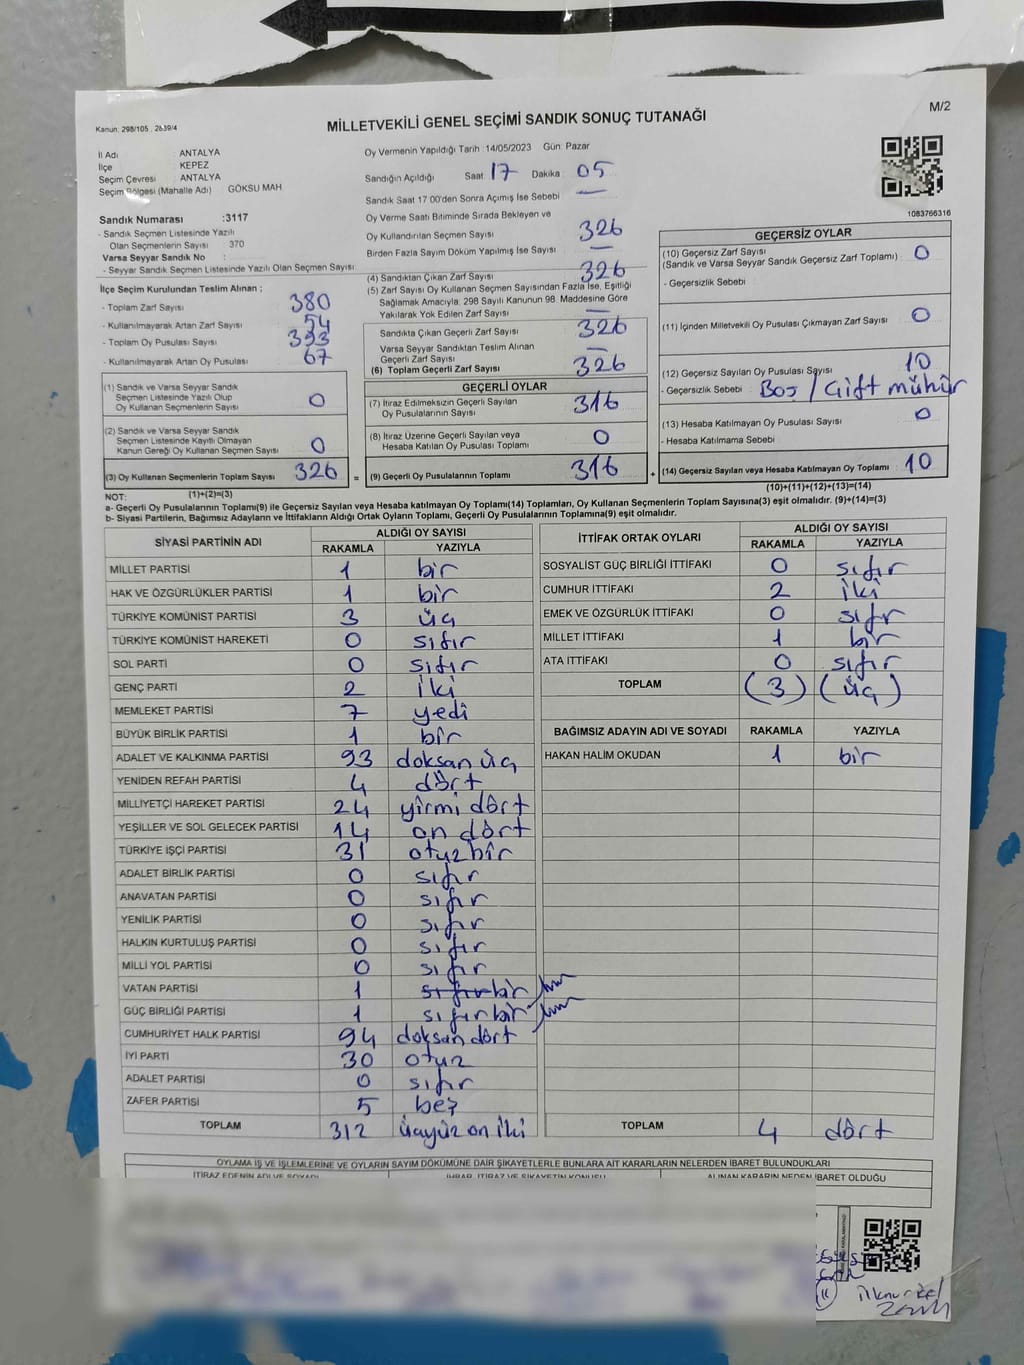 M/2
Kanun: 298/105 , 2839/4
MİLLETVEKİLİ GENEL SEÇİMİ SANDIK SONUÇ TUTANAĞI
İl Adı : ANTALYA
İlçe : KEPEZ
Seçim Çevresi : ANTALYA
Seçim Bölgesi (Mahalle Adı) GÖKSU MAH
Sandık Numarası :3117
- Sandık Seçmen Listesinde Yazılı
Olan Seçmenlerin Sayısı : 370
Varsa Seyyar Sandık No :
- Seyyar Sandık Seçmen Listesinde Yazılı Olan Seçmen Sayısı
İlçe Seçim Kurulundan Teslim Alınan ;
- Toplam Zarf Sayısı 380
- Kullanılmayarak Artan Zarf Sayısı 54
- Toplam Oy Pusulası Sayısı 393
- Kullanılmayarak Artan Oy Pusulası 67
(1) Sandık ve Varsa Seyyar Sandık
Seçmen Listesinde Yazılı Olup
Oy Kullanan Seçmenlerin Sayısı 0
(2) Sandık ve Varsa Seyyar Sandık
Seçmen Listesinde Kayıtlı Olmayan
Kanun Gereği Oy Kullanan Seçmen Sayısı 0
(3) Oy Kullanan Seçmenlerin Toplam Sayısı 326
(1)+(2)=(3)
Oy Vermenin Yapıldığı Tarih :14/05/2023 Gün: Pazar
Sandığın Açıldığı Saat: 17 Dakika: 05
Sandık Saat 17 00'den Sonra Açımış İse Sebebi —
Oy Verme Saati Bitiminde Sırada Bekleyen ve
Oy Kullandırılan Seçmen Sayısı 326
Birden Fazla Sayım Döküm Yapılmış İse Sayısı —
(4) Sandıktan Çıkan Zarf Sayısı 326
(5) Zarf Sayısı Oy Kullanan Seçmen Sayısından Fazla İse, Eşitliği
Sağlamak Amacıyla, 298 Sayılı Kanunun 98. Maddesine Göre
Yakılarak Yok Edilen Zarf Sayısı —
Sandıkta Çıkan Geçerli Zarf Sayısı 326
Varsa Seyyar Sandıktan Teslim Alınan
Geçerli Zarf Sayısı —
(6) Toplam Geçerli Zarf Sayısı 326
GEÇERLİ OYLAR
(7) İtiraz Edilmeksizin Geçerli Sayılan
Oy Pusulalarının Sayısı 316
(8) İtiraz Üzerine Geçerli Sayılan veya
Hesaba Katılan Oy Pusulası Toplamı 0
= (9) Geçerli Oy Pusulalarının Toplamı 316 +
1083766316
GEÇERSİZ OYLAR
(10) Geçersiz Zarf Sayısı 0
(Sandık ve Varsa Seyyar Sandık Geçersiz Zarf Toplamı)
- Geçersizlik Sebebi
(11) İçinden Milletvekili Oy Pusulası Çıkmayan Zarf Sayısı 0
(12) Geçersiz Sayılan Oy Pusulası Sayısı 10
- Geçersizlik Sebebi : Boş / Çift mühür
(13) Hesaba Katılmayan Oy Pusulası Sayısı 0
- Hesaba Katılmama Sebebi
(14) Geçersiz Sayılan veya Hesaba Katılmayan Oy Toplamı 10
(10)+(11)+(12)+(13)=(14)
NOT:
a- Geçerli Oy Pusulalarının Toplamı(9) ile Geçersiz Sayılan veya Hesaba katılmayan Oy Toplamı(14) Toplamları, Oy Kullanan Seçmenlerin Toplam Sayısına(3) eşit olmalıdır. (9)+(14)=(3)
b- Siyasi Partilerin, Bağımsız Adayların ve İttifakların Aldığı Ortak Oyların Toplamı, Geçerli Oy Pusulalarının Toplamına(9) eşit olmalıdır.
SİYASİ PARTİNİN ADI ALDIĞI OY SAYISI
RAKAMLA YAZIYLA
MİLLET PARTİSİ 1 bir
HAK VE ÖZGÜRLÜKLER PARTİSİ 1 bir
TÜRKİYE KOMÜNİST PARTİSİ 3 üç
TÜRKİYE KOMÜNİST HAREKETİ 0 sıfır
SOL PARTİ 0 sıfır
GENÇ PARTİ 2 iki
MEMLEKET PARTİSİ 7 yedi
BÜYÜK BİRLİK PARTİSİ 1 bir
ADALET VE KALKINMA PARTİSİ 93 doksan üç
YENİDEN REFAH PARTİSİ 4 dört
MİLLİYETÇİ HAREKET PARTİSİ 24 yirmi dört
YEŞİLLER VE SOL GELECEK PARTİSİ 14 on dört
TÜRKİYE İŞÇİ PARTİSİ 31 otuz bir
ADALET BİRLİK PARTİSİ 0 sıfır
ANAVATAN PARTİSİ 0 sıfır
YENİLİK PARTİSİ 0 sıfır
HALKIN KURTULUŞ PARTİSİ 0 sıfır
MİLLİ YOL PARTİSİ 0 sıfır
VATAN PARTİSİ 1 sıfır bir
GÜÇ BİRLİĞİ PARTİSİ 1 sıfır bir
CUMHURİYET HALK PARTİSİ 94 doksan dört
İYİ PARTİ 30 otuz
ADALET PARTİSİ 0 sıfır
ZAFER PARTİSİ 5 beş
TOPLAM 312 üçyüz on iki
İTTİFAK ORTAK OYLARI ALDIĞI OY SAYISI
RAKAMLA YAZIYLA
SOSYALİST GÜÇ BİRLİĞİ İTTİFAKI 0 sıfır
CUMHUR İTTİFAKI 2 iki
EMEK VE ÖZGÜRLÜK İTTİFAKI 0 sıfır
MİLLET İTTİFAKI 1 bir
ATA İTTİFAKI 0 sıfır
TOPLAM (3) (üç)
BAĞIMSIZ ADAYIN ADI VE SOYADI RAKAMLA YAZIYLA
HAKAN HALİM OKUDAN 1 bir
TOPLAM 4 dört
OYLAMA İŞ VE İŞLEMLERİNE VE OYLARIN SAYIM DÖKÜMÜNE DAİR ŞİKAYETLERLE BUNLARA AİT KARARLARIN NELERDEN İBARET BULUNDUKLARI
İTİRAZ EDENİN ADI VE SOYADI İHBAR, İTİRAZ VE ŞİKAYETİN KONUSU ALINAN KARARIN NEDEN İBARET OLDUĞU